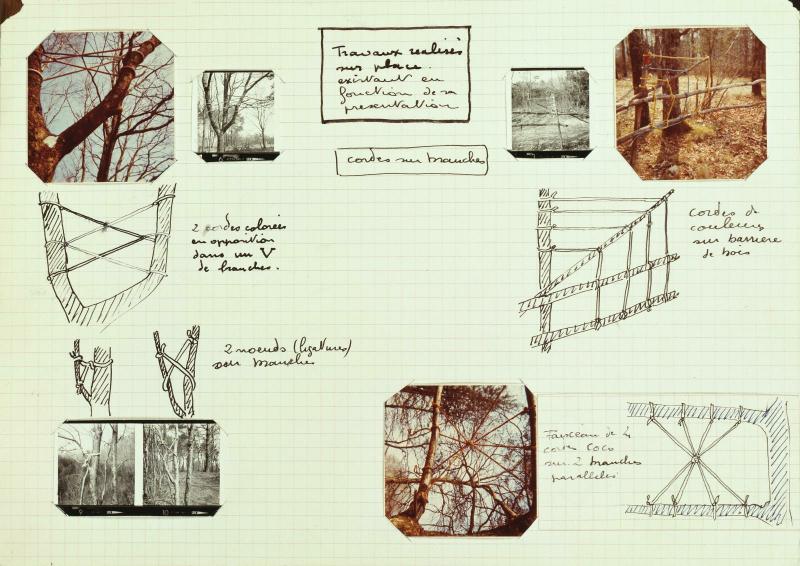 Travaux realisés
sur place.
existant en
fonction de sa
presentation
cordes sur branches
2 cordes colorées
en opposition
dans un V
de branches.
cordes de
couleurs
sur barriere
de bois
2 noeuds (ligatures)
sur branches
Faisceau de 4
cordes coco
sur 2 branches
paralleles
9
10